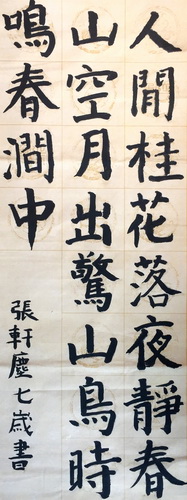 人閒桂花落夜靜春
山空月出驚山鳥時
鳴春澗中
張軒塵七歲書